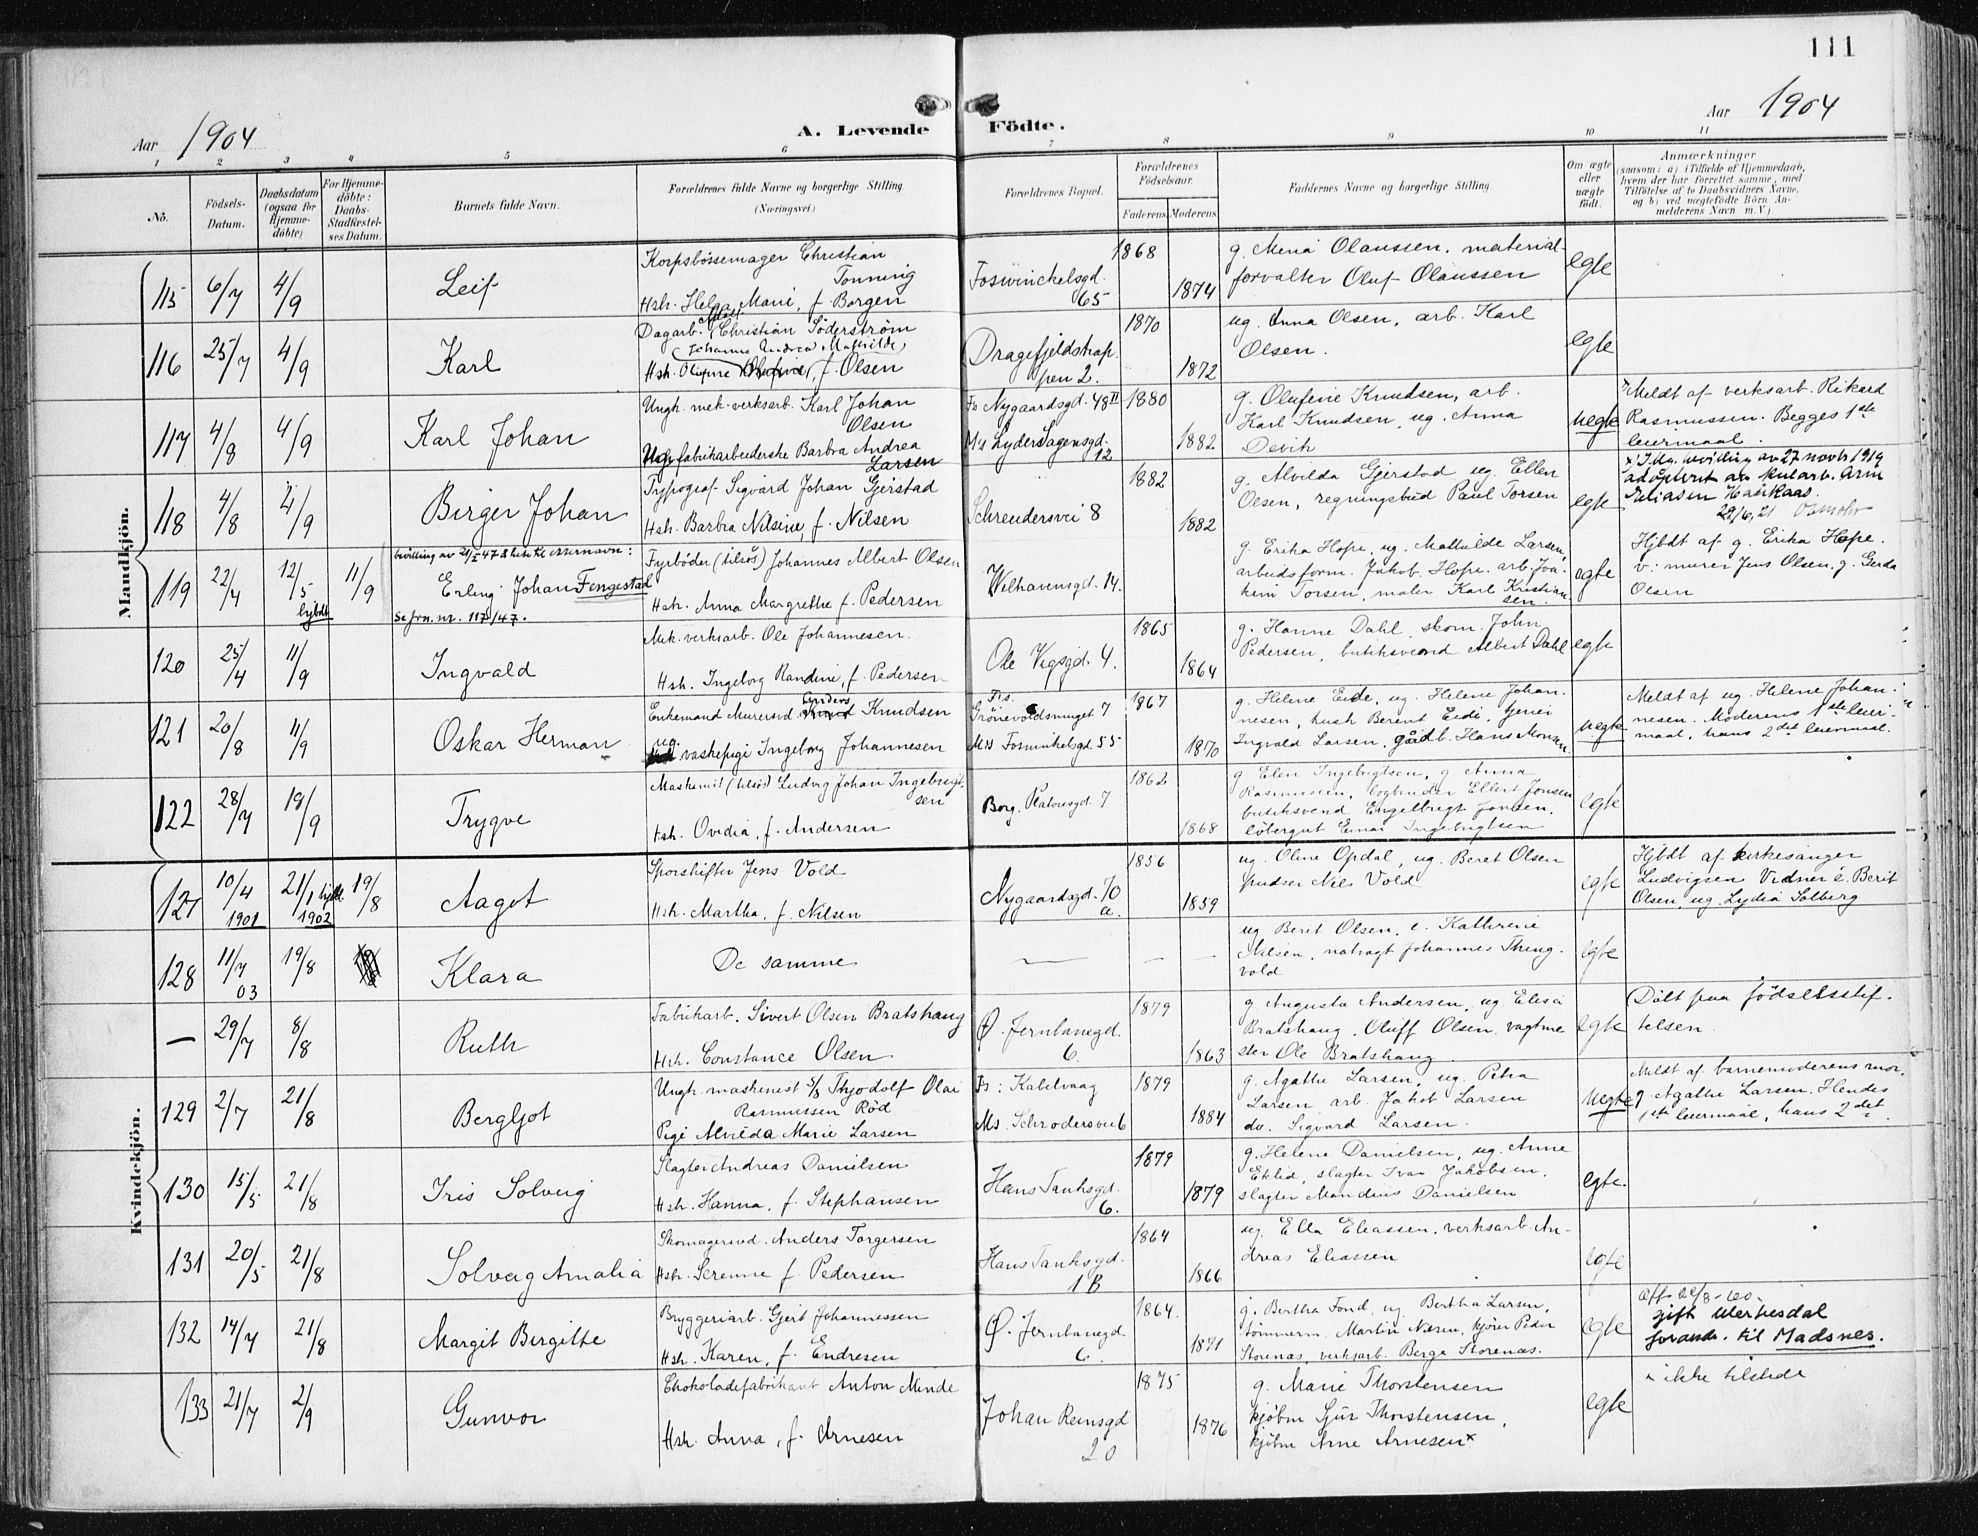 111
Aar 1904
A. Levende Födte.
Aar 1904
1 2 3 4 5 6 7 8 9 10 11
No.
Födsels-Datum.
Daabsdatum (ogsaa for Hjemme-döbte)
For Hjemme-döbte: Daabs-Stadfæstelses Datum.
Barnets fulde Navn.
Forældrenes fulde Navne og borgerlige Stilling
(Næringsvei.)
Forældrenes Bopæl.
Forældrenes Födselsaar.
Faderens. Moderens.
Faddernes Navne og borgerlige Stilling
Om ægte eller uægte födt.
Anmærkninger
(saasom: a) i Tilfælde af Hjemmedaab,
hvem der har forrettet samme, med
Tilföielse af to Daabsvidners Navne,
og b) ved uægtefödte Börn An-
melderens Navn m. V.)
Mandkjön.
115 6/7 4/9 Leif
Korpsbössemager Christian
Tonning
Hstr. Helga Marie, f. Borgen
Foswinckelsgd.
65
1868
1874
g. Mena Olaussen. material-
forvalter Oluf Olaussen
egte
116 25/7 4/9 Karl
Dagarb. Adolf Christian Söderström
(Johanne Andrea Mathilde)
Hstr. f. Olsen
Dragefjeldstrap-
pen 2.
1870
1872
ug. Anna Olsen, arb. Karl
Olsen.
egte
117 4/8 4/9 Karl Johan
Ungk. mek. verksarb. Karl Johan
Olsen
fabrikarbeiderske Barbra Andrea
Larsen
Fs Nygaardsgd. 48 II
Ms Lyder Sagensgd.
12
1880
1882
g. Olufine Knudsen, arb.
Karl Knudsen, ug. Anna
Devik
uegte
Meldt af verksarb. Rikard
Rasmussen. Begges 1ste
leiermaal.
118 4/8 4/9 Birger Johan
Typograf Sigvard Johan Gjerstad
Hstr. Barbra Nilsine, f. Nilsen
Schreudersvei 8
1882
1882
g. Alvilda Gjerstad ug. Ellen
Olsen, regningsbud Paul Torsen
egte
bevilling av 27 novbr 1919
adoptert av
Haukaas.
29/6.21
119 22/4 12/5 hjbdt 11/9
bevilling av 21/I 47
Erling Johan Fengestad
Se jrn. nr. 117/47.
Fyrböder (tilsös) Johannes Albert Olsen
Hstr. Anna Margrethe f. Pedersen
Welhavensgd. 14.
g. Erika Hope, ug. Mathilde Larsen,
arbeidsform. Jakob Hope. arb. Joa-
kim Torsen, maler Karl Kristian-
sen.
egte
Hjbdt af g. Erika Hope.
v: murer Jens Olsen, g. Gerda
Olsen
120 25/4 11/9 Ingvald
Mek. verksarb. Ole Johannesen.
Hstr. Ingeborg Randine, f. Pedersen
Ole Vigsgd. 4.
1865
1864
g. Hanne Dahl, skom. John
Pedersen, butiksvend Albert Dahl
egte
121 20/8 11/9 Oskar Herman
Enkemand Muresvd. Anders Knudsen
ug. vaskepige Ingeborg Johannesen
Fs.
Grönevoldsmuget 7
Ms Foswinkelsgd. 55
1867
1870
g. Helene Eide, ug. Helene Johan-
nesen, husk Berent Eide, tjener
Ingvald Larsen, gårdb. Hans Monsen
uegte
Meldt af ug. Helene Johan-
nesen. Moderens 1ste leier-
maal, hans 2det leiermaal.
122 28/7 18/9 Trygve
Maskinist (tilsös) Ludvig Johan Ingebrigt-
sen
Hstr. Ovidia, f. Andersen
Borg. Platousgd. 7
1862
1868
g. Elen Ingebrigtsen, g. Anna
Rasmussen, bogbinder Ellert Jonsen
butiksvend Engelbregt Jonsen.
löbergut Einar Ingebrigtsen
egte
Kvindekjön.
127 10/4 1901 21/1 hjdt. 1902 19/8 Aagot
Sporskifter Jens Vold
Hstr. Martha, f. Nilsen
Nygaardsgd. 70
a.
1856
1859
ug. Oline Opdal, ug. Beret Olsen
pudser Nils Vold
egte
Hjbdt af kirkesanger
Ludvigsen Vidner e. Berit
Olsen, ug. Lydia Solberg
128 11/7 03 19/8 Klara
De samme
— — —
ug Berit Olsen, e. Kathrine
Nilsen, natvagt Johannes Thing-
vold
egte
— 29/7 8/8 Ruth
Fabrikarb. Sivert Olsen Bratshaug
Hstr. Constance Olsen
Ø. Jernbanegd.
6.
1879
1863
g. Augusta Andersen, ug Elisa
Bratshaug, Oluff Olsen, vagtme
ster Ole Bratshaug
egte
Döbt paa födselsstif-
telsen
129 2/7 21/8 Bergljot
Ungk. maskinist Thjodolf Olai
Rasmussen Röd
Pige Alvilda Marie Larsen
Fs: Kabelvaag
Ms. Schrodersvei 6
1879
1884
g. Agathe Larsen, ug. Petra
Larsen arb. Jakob Larsen
do. Sigvard Larsen.
uegte
Meldt af barnemoderens mor,
g Agathe Larsen. Hendes
1ste leiermaal, hans 2det
130 15/5 21/8 Iris Solveig
Slagter Andreas Danielsen
Hstr. Hanna, f. Stephansen
Hans Tanksgd.
6.
1879
1879
g. Helene Danielsen, ug. Anne
Eklid, slagter Ivar Jakobsen,
slagter Mandius Danielsen
egte.
131 20/5 21/8 Solveig Amalia
Skomagersvd. Anders Torgersen
Hstr. Serenne f. Pedersen
Hans Tanksgd.
1 B
1864
1866
ug. Ella Eliassen, verksarb. An-
dreas Eliassen
egte
132 14/7 21/8 Margit Bergitte
Bryggeriarb. Gjert Johannessen
Hstr. Karen, f. Endresen
Ø. Jernbanegd.
6.
1864.
1871
g. Bertha Fond, ug. Bertha Larsen,
tömmerm. Martin Nilsen, kjörer Peder
Storenas, verksarb. Berge Storenas.
egte
gift
forandr. til Madsnes.
133 21/7 2/9 Gunvor
Chokoladefabrikant Anton Minde
Hstr. Anna, f. Arnesen
Johan Reinsgd
20
1875
1876
g. Marie Thorstensen
kjøbm Sjur Thorstensen,
kjøbm Arne Arnesen x
egte
x ikke tilstede